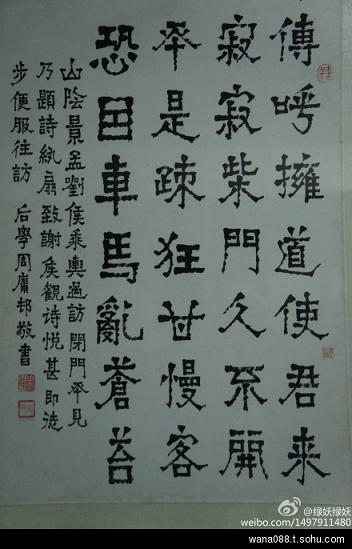 傳呼擁道使君来
寂寂柴門久不開
不是疎狂甘慢客
恐因車馬亂蒼苔
山陰景孟劉侯乘輿過訪閉門不見
乃題詩紈扇致謝侯觀詩悦甚即徒
步便服往訪 后學周庸邨敬書
@绿妖绿妖
weibo.com/1497911480
wana088.t.sohu.com